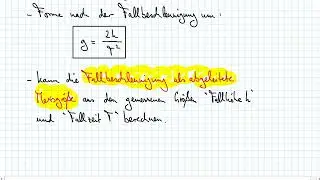 - Forme nach der Fallbeschleunigung um:
g = 2h / T²
- kann die Fallbeschleunigung als abgeleitete
Messgröße aus den gemessenen Größen "Fallhöhe h"
und "Fallzeit T" berechnen.